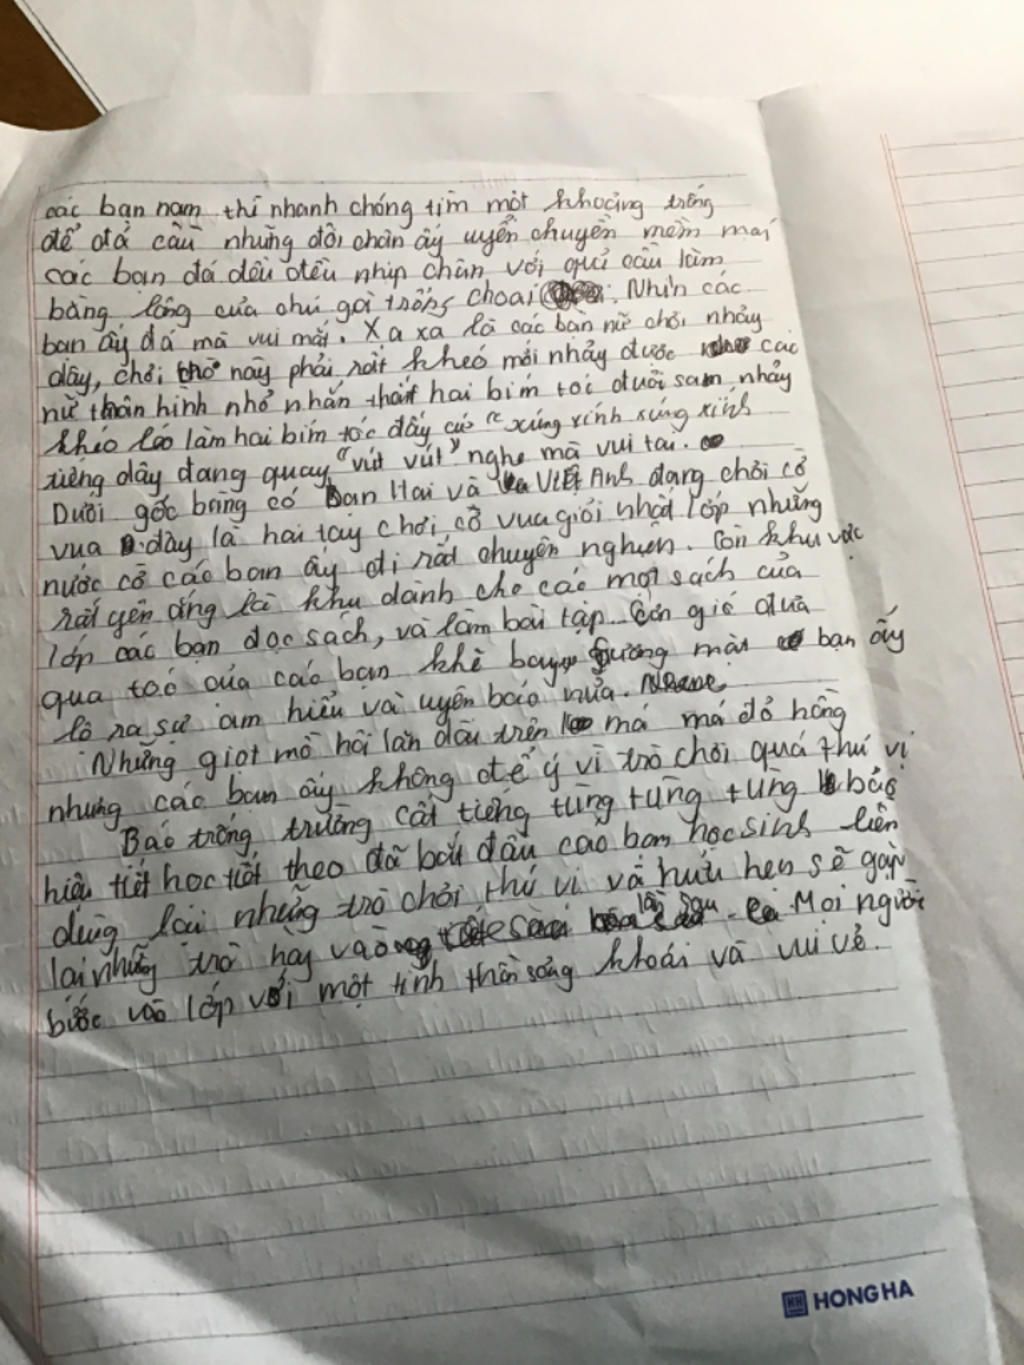 các bạn nam thì nhanh chóng tìm một khoảng trống
để đá cầu những đôi chân ấy uyển chuyển mềm mại
các bạn đá đều đều nhịp chân với quả cầu làm
bằng lông của chú gà trống choai. Nhìn các
bạn ấy đá mà vui mắt. Xa xa là các bạn nữ chơi nhảy
dây, chơi trò này phải rất khéo mới nhảy được các
nữ thân hình nhỏ nhắn thắt hai bím tóc đuôi sam nhảy
khéo léo làm hai bím tóc đấy cứ "xúng xính xúng xính
tiếng dây đang quay "vút vút" nghe mà vui tai.
Dưới gốc bàng có bạn Hai và Việt Anh đang chơi cờ
vua đây là hai tay chơi cờ vua giỏi nhất lớp những
nước cờ các bạn ấy đi rất chuyên nghiện. Còn khu vực
rất yên ắng là khu dành cho các mọt sách của
lớp các bạn đọc sách, và làm bài tập. Cơn gió đưa
qua tóc của các bạn khẽ bay, gương mặt bạn ấy
lộ ra sự am hiểu và uyên bác nữa.
Những giọt mồ hôi lăn dài trên má má đỏ hồng
nhưng các bạn ấy không để ý vì trò chơi quá thú vị
Bác trống trường cất tiếng tùng tùng tùng báo
hiệu tiết học tiết theo đã bắt đầu các bạn học sinh liền
dừng lại những trò chơi thú vị và hứa hẹn sẽ gặp
lại những trò hay vào lần sau. Mọi người
bước vào lớp với một tinh thần sảng khoái và vui vẻ.
HH HONG HA